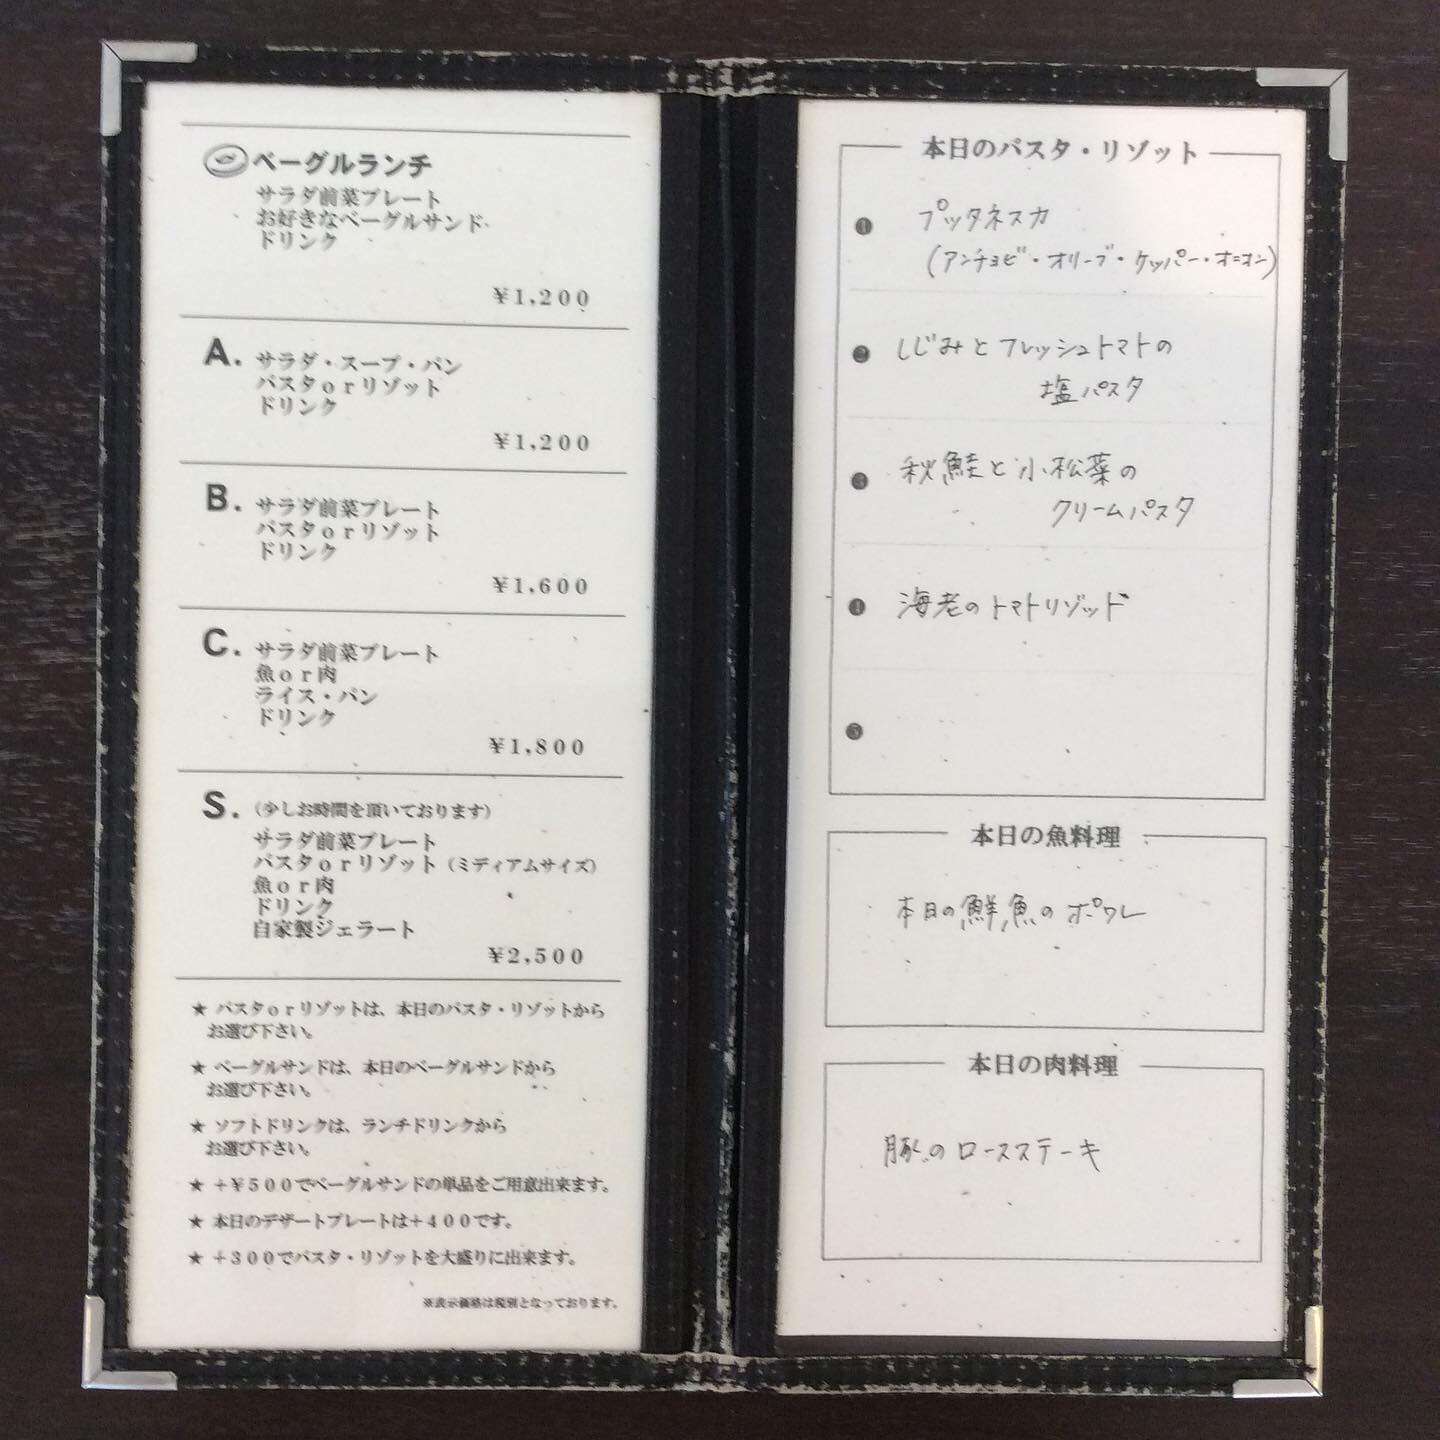 ベーグルランチ
サラダ前菜プレート
お好きなベーグルサンド
ドリンク
¥1,200
A. サラダ・スープ・パン
パスタorリゾット
ドリンク
¥1,200
B. サラダ前菜プレート
パスタorリゾット
ドリンク
¥1,600
C. サラダ前菜プレート
魚or肉
ライス・パン
ドリンク
¥1,800
S. (少しお時間を頂いております)
サラダ前菜プレート
パスタorリゾット(ミディアムサイズ)
魚or肉
ドリンク
自家製ジェラート
¥2,500
★ パスタorリゾットは、本日のパスタ・リゾットから
お選び下さい。
★ ベーグルサンドは、本日のベーグルサンドから
お選び下さい。
★ ソフトドリンクは、ランチドリンクから
お選び下さい。
★ +¥500でベーグルサンドの単品をご用意出来ます。
★ 本日のデザートプレートは+400です。
★ +300でパスタ・リゾットを大盛りに出来ます。
※表示価格は税別となっております。
本日のパスタ・リゾット
❶ プッタネスカ
(アンチョビ・オリーブ・ケッパー・オニオン)
❷ しじみとフレッシュトマトの
塩パスタ
❸ 秋鮭と小松菜の
クリームパスタ
❹ 海老のトマトリゾット
❺
本日の魚料理
本日の鮮魚のポワレ
本日の肉料理
豚のロースステーキ